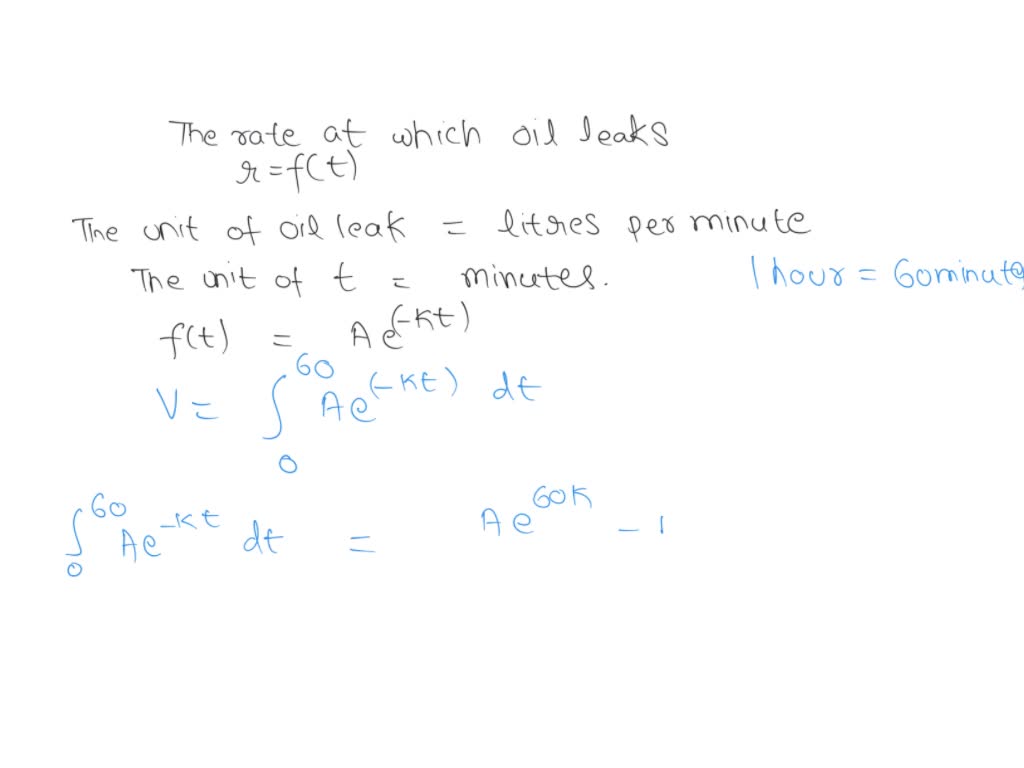 The rate at which oil leaks
r = f(t)
The unit of oil leak = litres per minute
The unit of t = minutes. 1 hour = 60 minute
f(t) = Ae^(-Kt)
V = ∫_0^60 Ae^(-Kt) dt
∫_0^60 Ae^-Kt dt = Ae^60K - 1